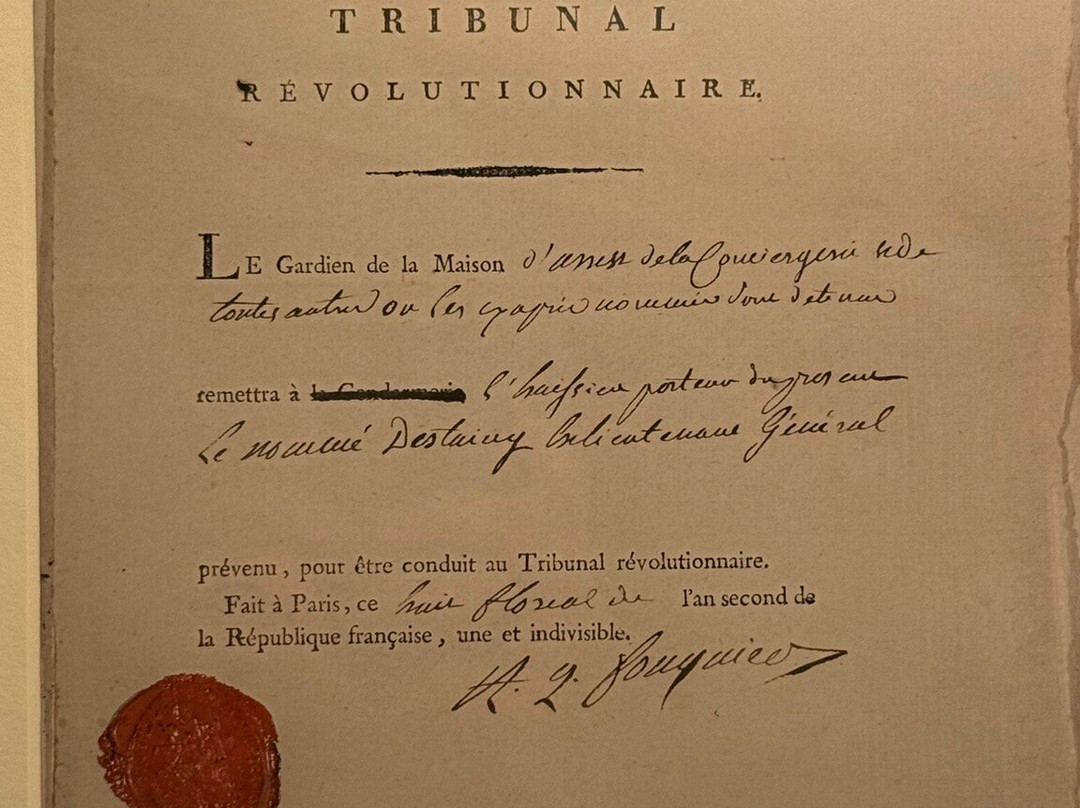 TRIBUNAL
RÉVOLUTIONNAIRE.
LE Gardien de la Maison d'arrest de la Conciergerie & de
toutes autres ou les cy après nommés sont detenus
remettra à la Gendarmerie l'huissier porteur du present
Le nommé Destaing Lieutenant Général
prévenu, pour être conduit au Tribunal révolutionnaire.
Fait à Paris, ce huit floreal de l'an second de
la République française, une et indivisible.
A. Q. fouquier